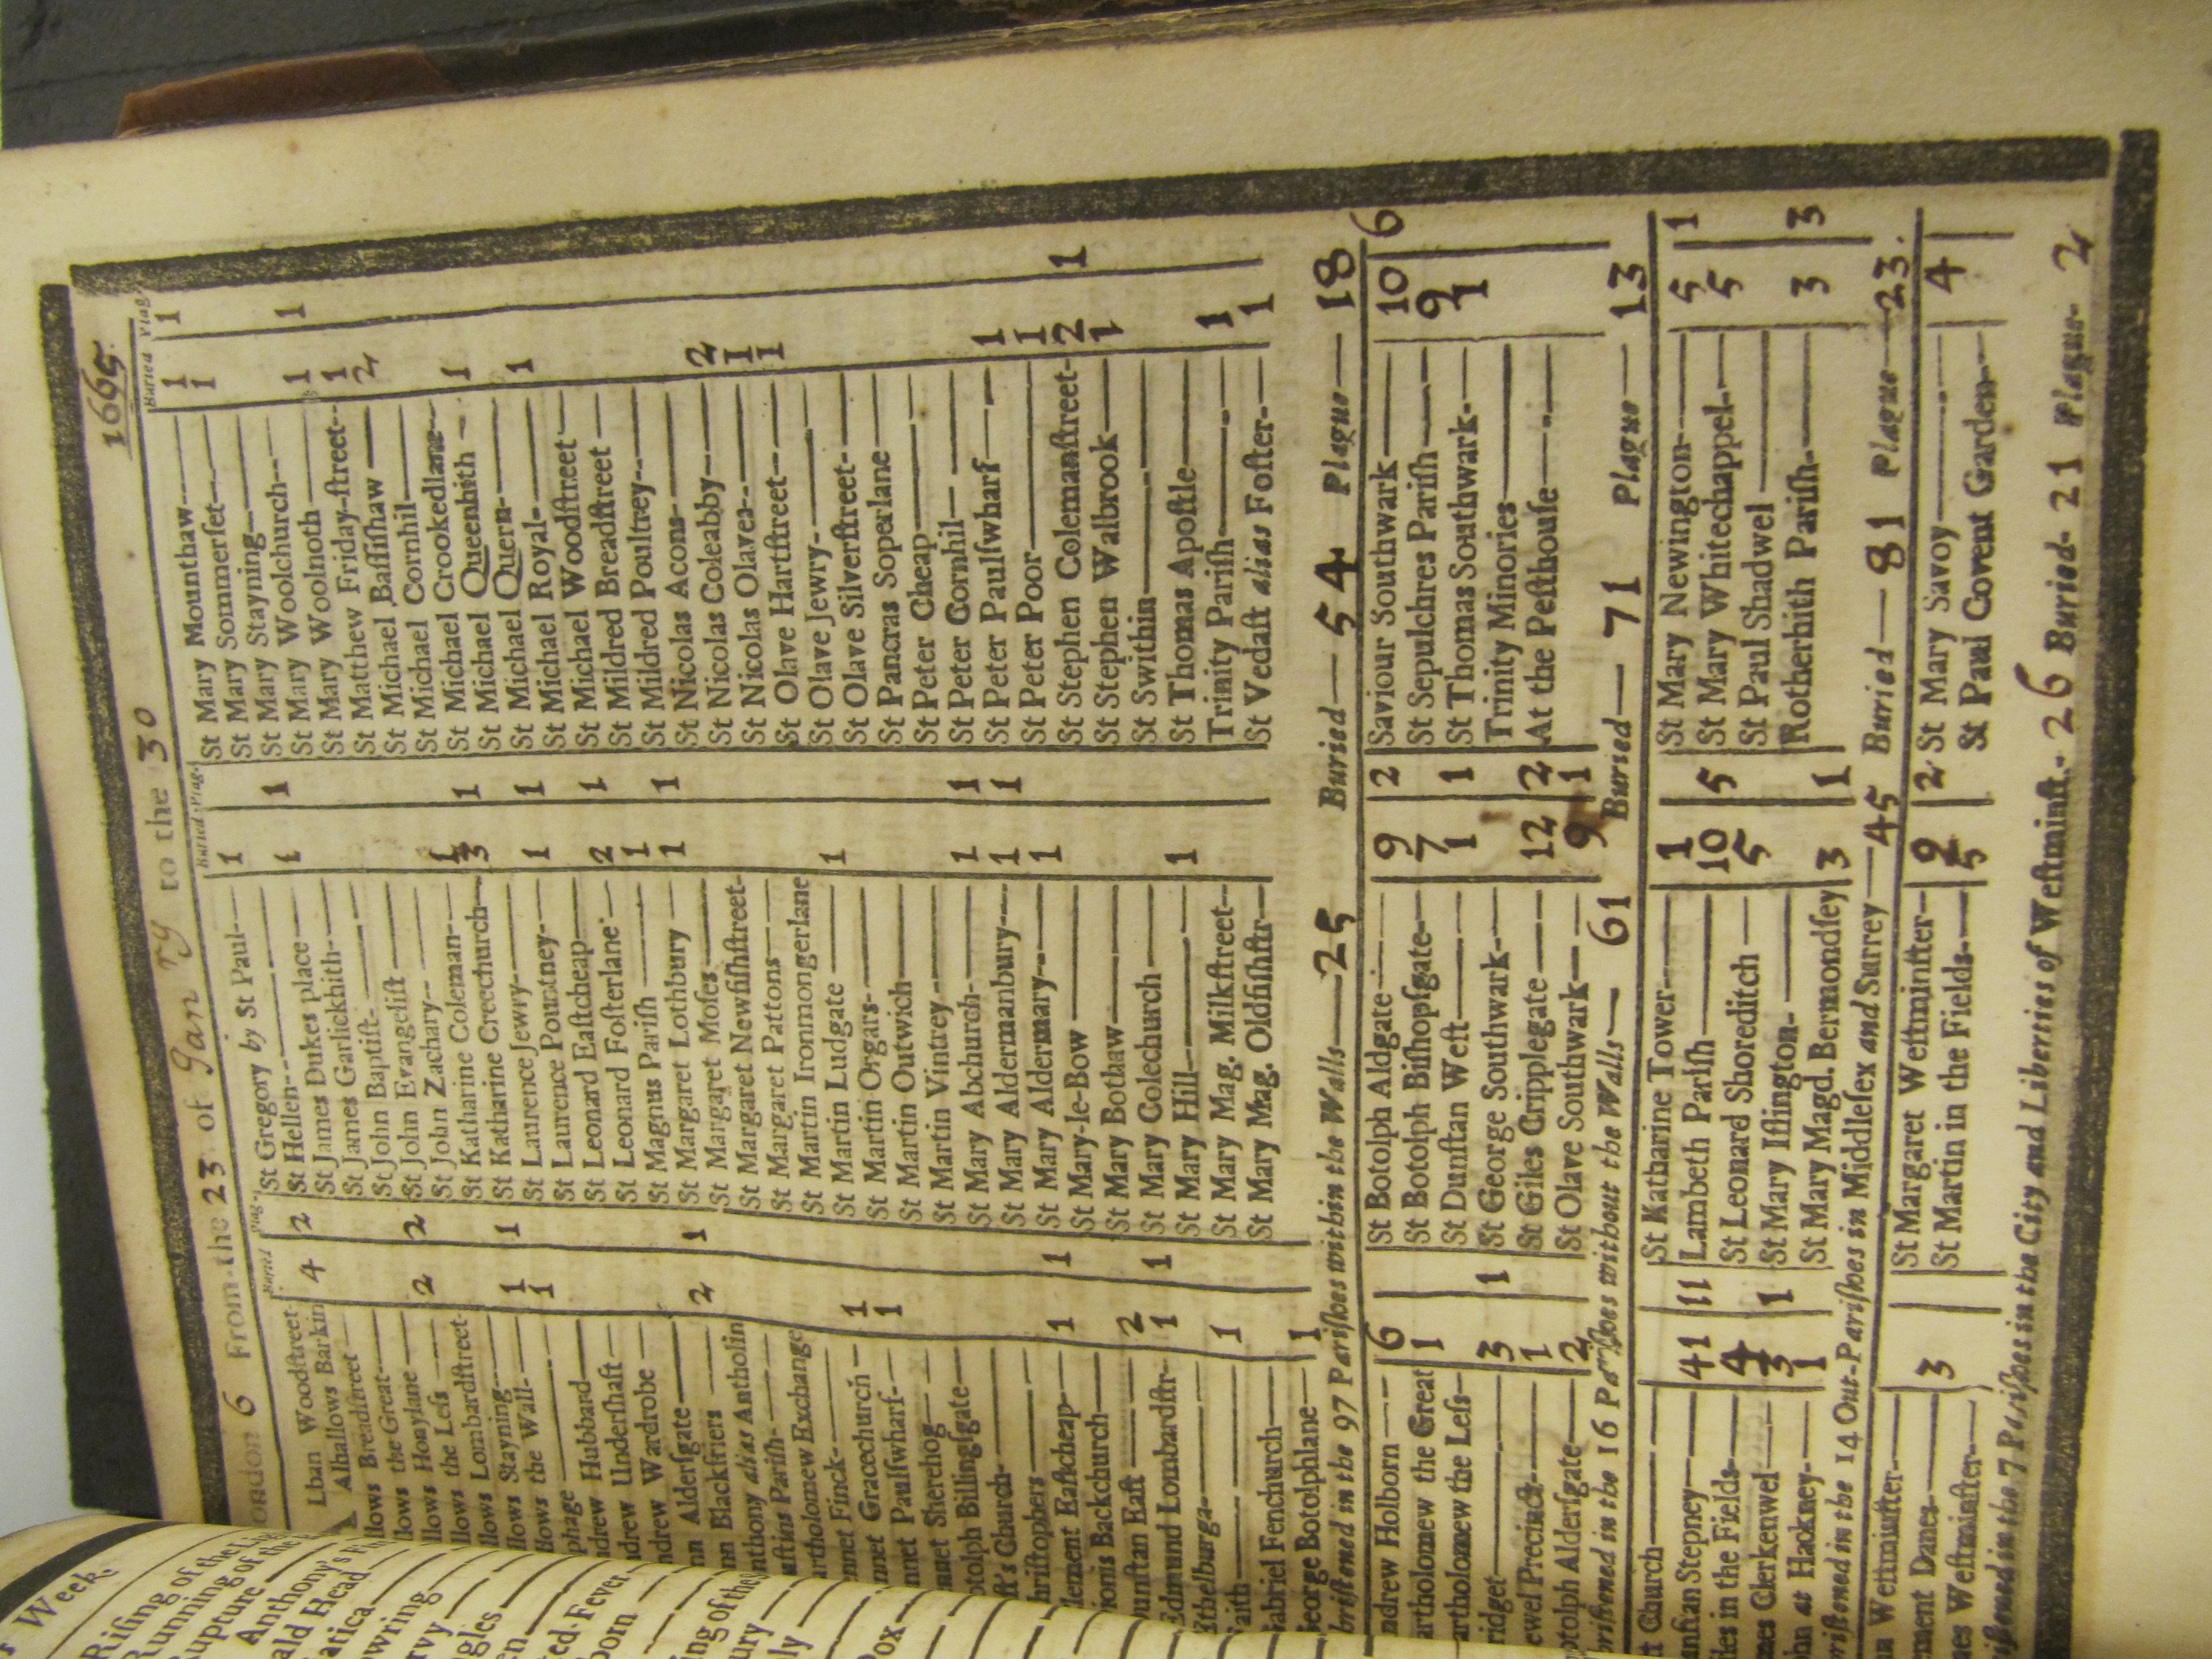 ondon 6 From the 23 of Janry to the 30 1665
Buried Plag.
Lban Woodstreet
A Alhallows Barkin 4 2
llows Breadstreet
llows the Great
llows Honylane
llows the Less 2 2
llows Lombardstreet
llows Stayning
llows the Wall 1 1
phage 1
drew Hubbard
drew Undershaft
ndrew Wardrobe
nn Aldersgate
nn Blackfriers 2 1
nthony alias Antholin
ustins Parish
artholomew Exchange
nnet Finck
nnet Gracechurch 1
nnet Paulswharf 1
nnet Sherehog
otolph Billingsgate
ff's Church
hristophers
lement Eastcheap 1 1
ionis Backchurch
unstan East 2
Edmund Lombardstr 1 1
Ethelburga
Faith 1
Gabriel Fenchurch
George Botolphlane 1
Buried Plag.
St Gregory by St Paul 1
St Hellen
St James Dukes place 1 1
St James Garlickhith
St John Baptist
St John Evangelist
St John Zachary
St Katharine Coleman 1
St Katharine Creechurch 3 1
St Laurence Jewry
St Laurence Pountney 1 1
St Leonard Eastcheap
St Leonard Fosterlane 2 1
St Magnus Parish 1
St Margaret Lothbury 1 1
St Margaret Moses
St Margaret Newfishstreet
St Margaret Pattons
St Martin Ironmongerlane
St Martin Ludgate 1
St Martin Orgars
St Martin Outwich
St Martin Vintrey
St Mary Abchurch 1 1
St Mary Aldermanbury 1 1
St Mary Aldermary 1
St Mary-le-Bow
St Mary Bothaw
St Mary Colechurch
St Mary Hill 1
St Mary Mag. Milkstreet
St Mary Mag. Oldfishstr
Buried Plag
St Mary Mounthaw 1 1
St Mary Sommerset 1
St Mary Stayning
St Mary Woolchurch
St Mary Woolnoth 1 1
St Matthew Friday-street 1
St Michael Bassishaw 2
St Michael Cornhil
St Michael Crookedlane
St Michael Queenhith 1
St Michael Quern
St Michael Royal 1
St Michael Woodstreet
St Mildred Breadstreet
St Mildred Poultrey
St Nicolas Acons
St Nicolas Coleabby 2
St Nicolas Olaves 1
St Olave Hartstreet 1
St Olave Jewry
St Olave Silverstreet
St Pancras Soperlane
St Peter Cheap
St Peter Cornhil
St Peter Paulswharf 1
St Peter Poor 1
St Stephen Colemanstreet 2 1
St Stephen Walbrook 1
St Swithin
St Thomas Apostle
Trinity Parish 1
St Vedast alias Foster 1
hristened in the 97 Parishes within the Walls 25 Buried 54 Plague 18
ndrew Holborn 6
artholomew the Great 1
artholomew the Less
ridget 3 1
ewel Precinct 1
otolph Aldersgate 2
St Botolph Aldgate 9 2
St Botolph Bishopsgate 7
St Dunstan West 1 1
St George Southwark
St Giles Cripplegate 12 2
St Olave Southwark 9 1
Saviour Southwark 10 6
St Sepulchres Parish 9
St Thomas Southwark 1
Trinity Minories
At the Pesthouse
hristened in the 16 Parishes without the Walls 61 Buried 71 Plague 13
t Church
unstan Stepney 41 11
iles in the Fields 4
mes Clerkenwel 3 1
ohn at Hackney 1
St Katharine Tower 1
Lambeth Parish 10 5
St Leonard Shoreditch 5
St Mary Islington
St Mary Magd. Bermondsey 3 1
St Mary Newington 5 1
St Mary Whitechappel 5
St Paul Shadwel
Rotherhith Parish 3 3
hristened in the 14 Out-Parishes in Middlesex and Surrey 45 Buried 81 Plague 23.
n Westminster
ement Danes 3
mes Westminster
St Margaret Westminster 9 2
St Martin in the Fields 5
St Mary Savoy 4
St Paul Covent Garden
istened in the 7 Parishes in the City and Liberties of Westminst. 26 Buried 21 Plague 2
s Week.
Rising of the Lig
Running of the
Rupture
Anthony's Fi
ald Head
iatica
owring
rvy
ngles
ted Fever
born
ing of the
ury
ly
Pox